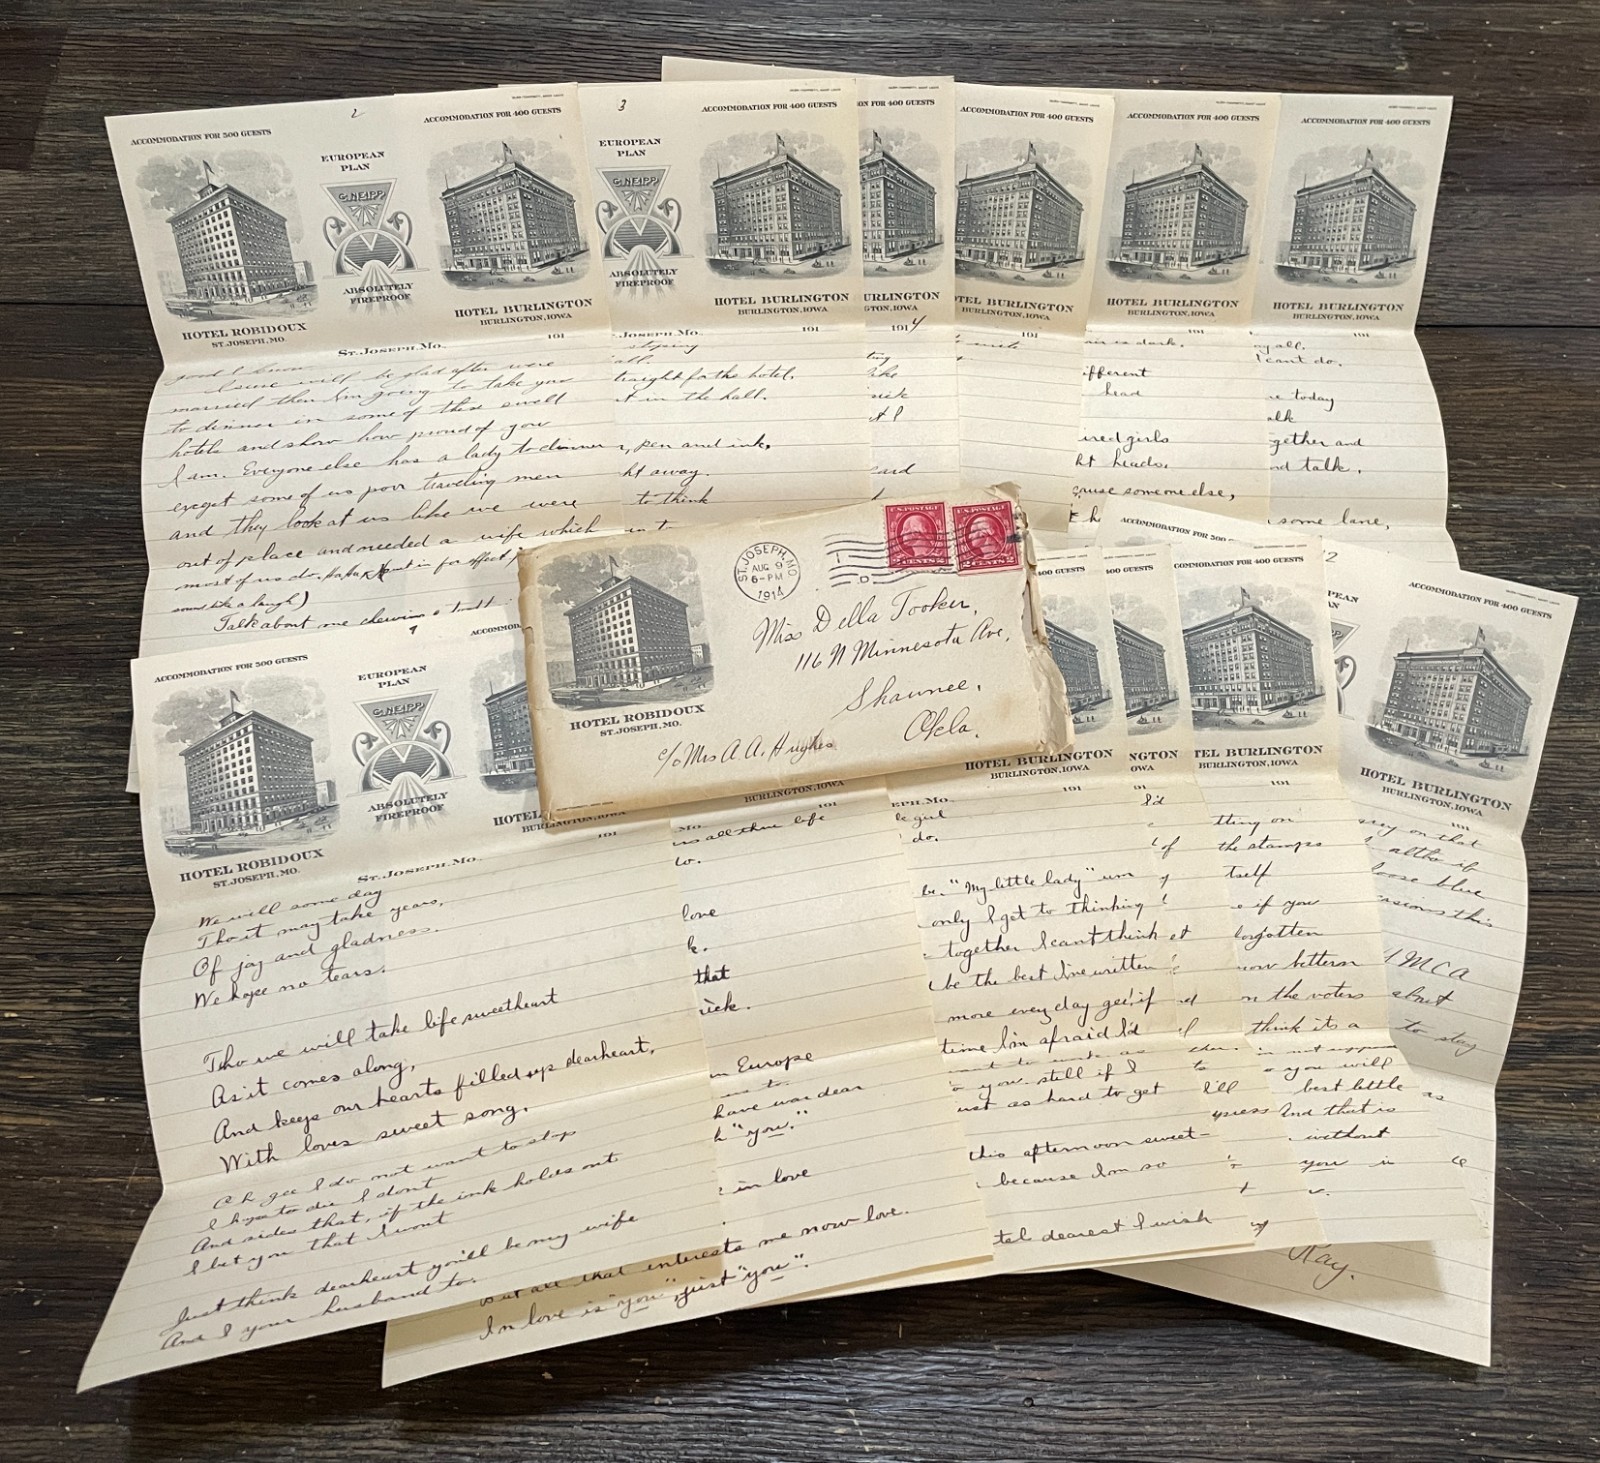 2
ACCOMMODATION FOR 500 GUESTS
EUROPEAN
PLAN
ABSOLUTELY
FIREPROOF
HOTEL ROBIDOUX
ST. JOSEPH, MO.
ACCOMMODATION FOR 400 GUESTS
HOTEL BURLINGTON
BURLINGTON, IOWA
St. Joseph, Mo. 191
good I know
I sure will be glad after were
married then I'm going to take you
to dinner in some of these swell
hotels and show how proud of you
I am. Everyone else has a lady to dinner
except some of us poor traveling men
and they look at us like we were
out of place and needed a wife which
most of us do.
some like a laugh)
Talk about me chewing
3
EUROPEAN
PLAN
ABSOLUTELY
FIREPROOF
ACCOMMODATION FOR 400 GUESTS
HOTEL BURLINGTON
BURLINGTON, IOWA
. Joseph, Mo. 191
all.
traight for the hotel.
t in the hall.
, pen and ink.
ht away.
to think
in t
ON FOR 400 GUESTS
URLINGTON
N, IOWA
1914
ting
like
sick
t I
card
ACCOMMODATION FOR 400 GUESTS
OTEL BURLINGTON
BURLINGTON, IOWA
191
ACCOMMODATION FOR 400 GUESTS
HOTEL BURLINGTON
BURLINGTON, IOWA
191
air is dark.
ifferent
head
ired girls
ht heads.
cause someone else,
ACCOMMODATION FOR 400 GUESTS
HOTEL BURLINGTON
BURLINGTON, IOWA
191
ay all.
I cant do.
e today
alk
gether and
nd talk.
some lane,
HOTEL ROBIDOUX
ST. JOSEPH, MO.
ST. JOSEPH, MO.
AUG 9
6-PM
1914
U.S. POSTAGE
2 CENTS 2
U.S. POSTAGE
2 CENTS 2
Miss Della Tooker,
116 N Minnesota Ave,
Shawnee,
Okla.
c/o Mrs A. A. Hughes
9
ACCOMMODATION FOR 500 GUESTS
EUROPEAN
PLAN
ABSOLUTELY
FIREPROOF
HOTEL ROBIDOUX
ST. JOSEPH, MO.
ACCOMMOD
HOTEL
BURLINGTON, IOWA
St. Joseph, Mo. 191
We will some day
Tho it may take years,
Of joy and gladness.
We hope no tears.
Tho we will take life sweetheart
As it comes along,
And keep our hearts filled up dearheart,
With loves sweet song.
Ah gee I do not want to stop
I hope to die I dont
And sides that, if the ink holds out
I bet you that I wont
Just think dearheart you'll be my wife
And I your husband to.
BURLINGTON, IOWA
Mo. 191
us all thru life
to.
love
k.
that
ick.
n Europe
us to
have war dear
h "you."
in love
But all that interests me now love.
In love is "you", just "you".
400 GUESTS
HOTEL BURLINGTON
BURLINGTON, IOWA
EPH, Mo. 191
le girl
do.
be. "My little lady" um
only I get to thinking
together I cant think
be the best I've written
more every day gee! if
time I'm afraid I'd
want to work as
you still if I
ust as hard to get
this afternoon sweet-
because I'm so
tel dearest I wish
400 GUESTS
NGTON
OWA
91
I'd
of
I'll
400 GUESTS
TEL BURLINGTON
BURLINGTON, IOWA
191
tting on
the stamps
tself
e if you
forgotten
now betterm
n the voters
think its a
you will
best little
And that is
without
you is
ACCOMMODATION FOR 500
12
EAN
ACCOMMODATION FOR 400 GUESTS
HOTEL BURLINGTON
BURLINGTON, IOWA
191
on that
altho if
loose blue
casions this
YMCA
about
to stay
as
Ray.